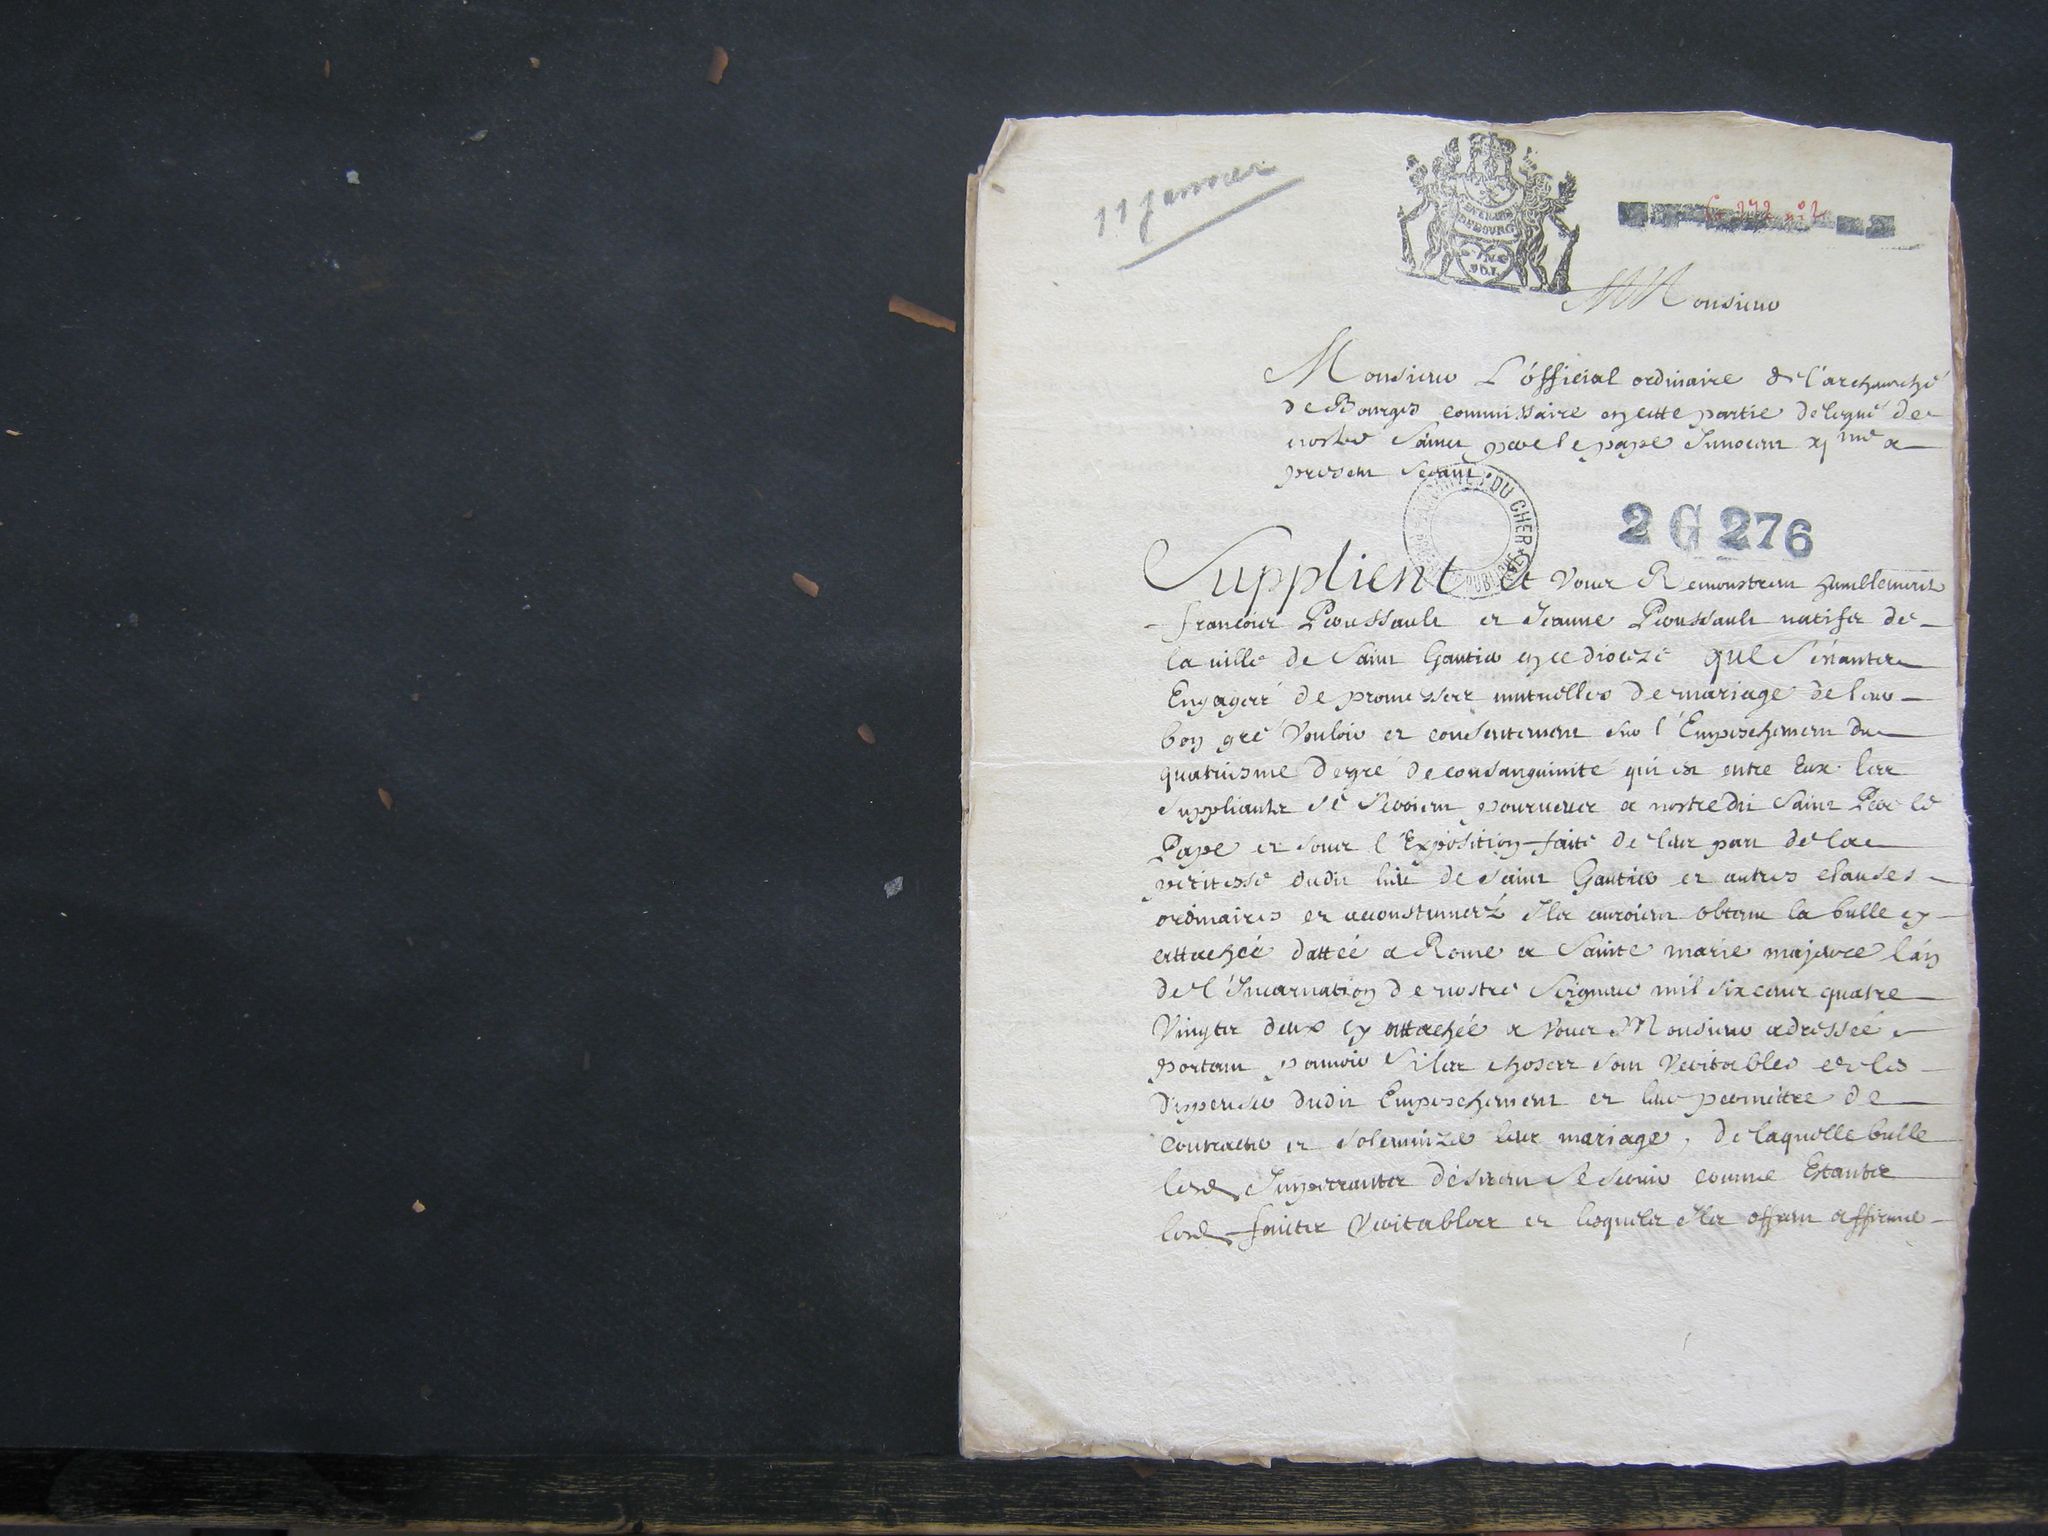 11 janvier
GNERALITE
DE BOURG
CINQ
SOL
G 272 n° 2
A Monsieur
Monsieur L'official ordinaire de l'archevesché
de Bourges commissaire en cette partie delegué de
nostre Sainct pere le pape Innocent xj me a
present seant.
ARCHIVES DU CHER
PUBLIQUE
2 G 276
Supplient et vous Remonstrent humblement
francois Proussault et Jeanne Proussault natifs de
la ville de Saint Gautier en ce dioceze que s'estants
Engagez de promesses mutuelles de mariage de leur
bon gré vouloir et consentement sur l'Empeschement du
quatriesme degré de consanguinité qui est entre Eux les
suppliants se seroient pourveus a nostredit Saint Pere le
Pape et sous l'Exposition faite de leur part de la
petitesse dudit lieu de Saint Gautier et autres clauses
ordinaires et accoustumez Ils auroient obtenu la bulle cy
attachée dattée a Rome a Sainte marie majeure l'an
de l'Incarnation de nostre Seigneur mil six cents quatre
Vingts deux cy attachée a vous Monsieur adressée
portant pouvoir si les choses sont veritables de les
dispenser dudit Empeschement et leur permettre de
Contracter et solemnizer leur mariage, de laquelle bulle
lesd Impetrants desirent se servir comme Estants
lesd faits veritables et lesquels Ils offrent affirmer